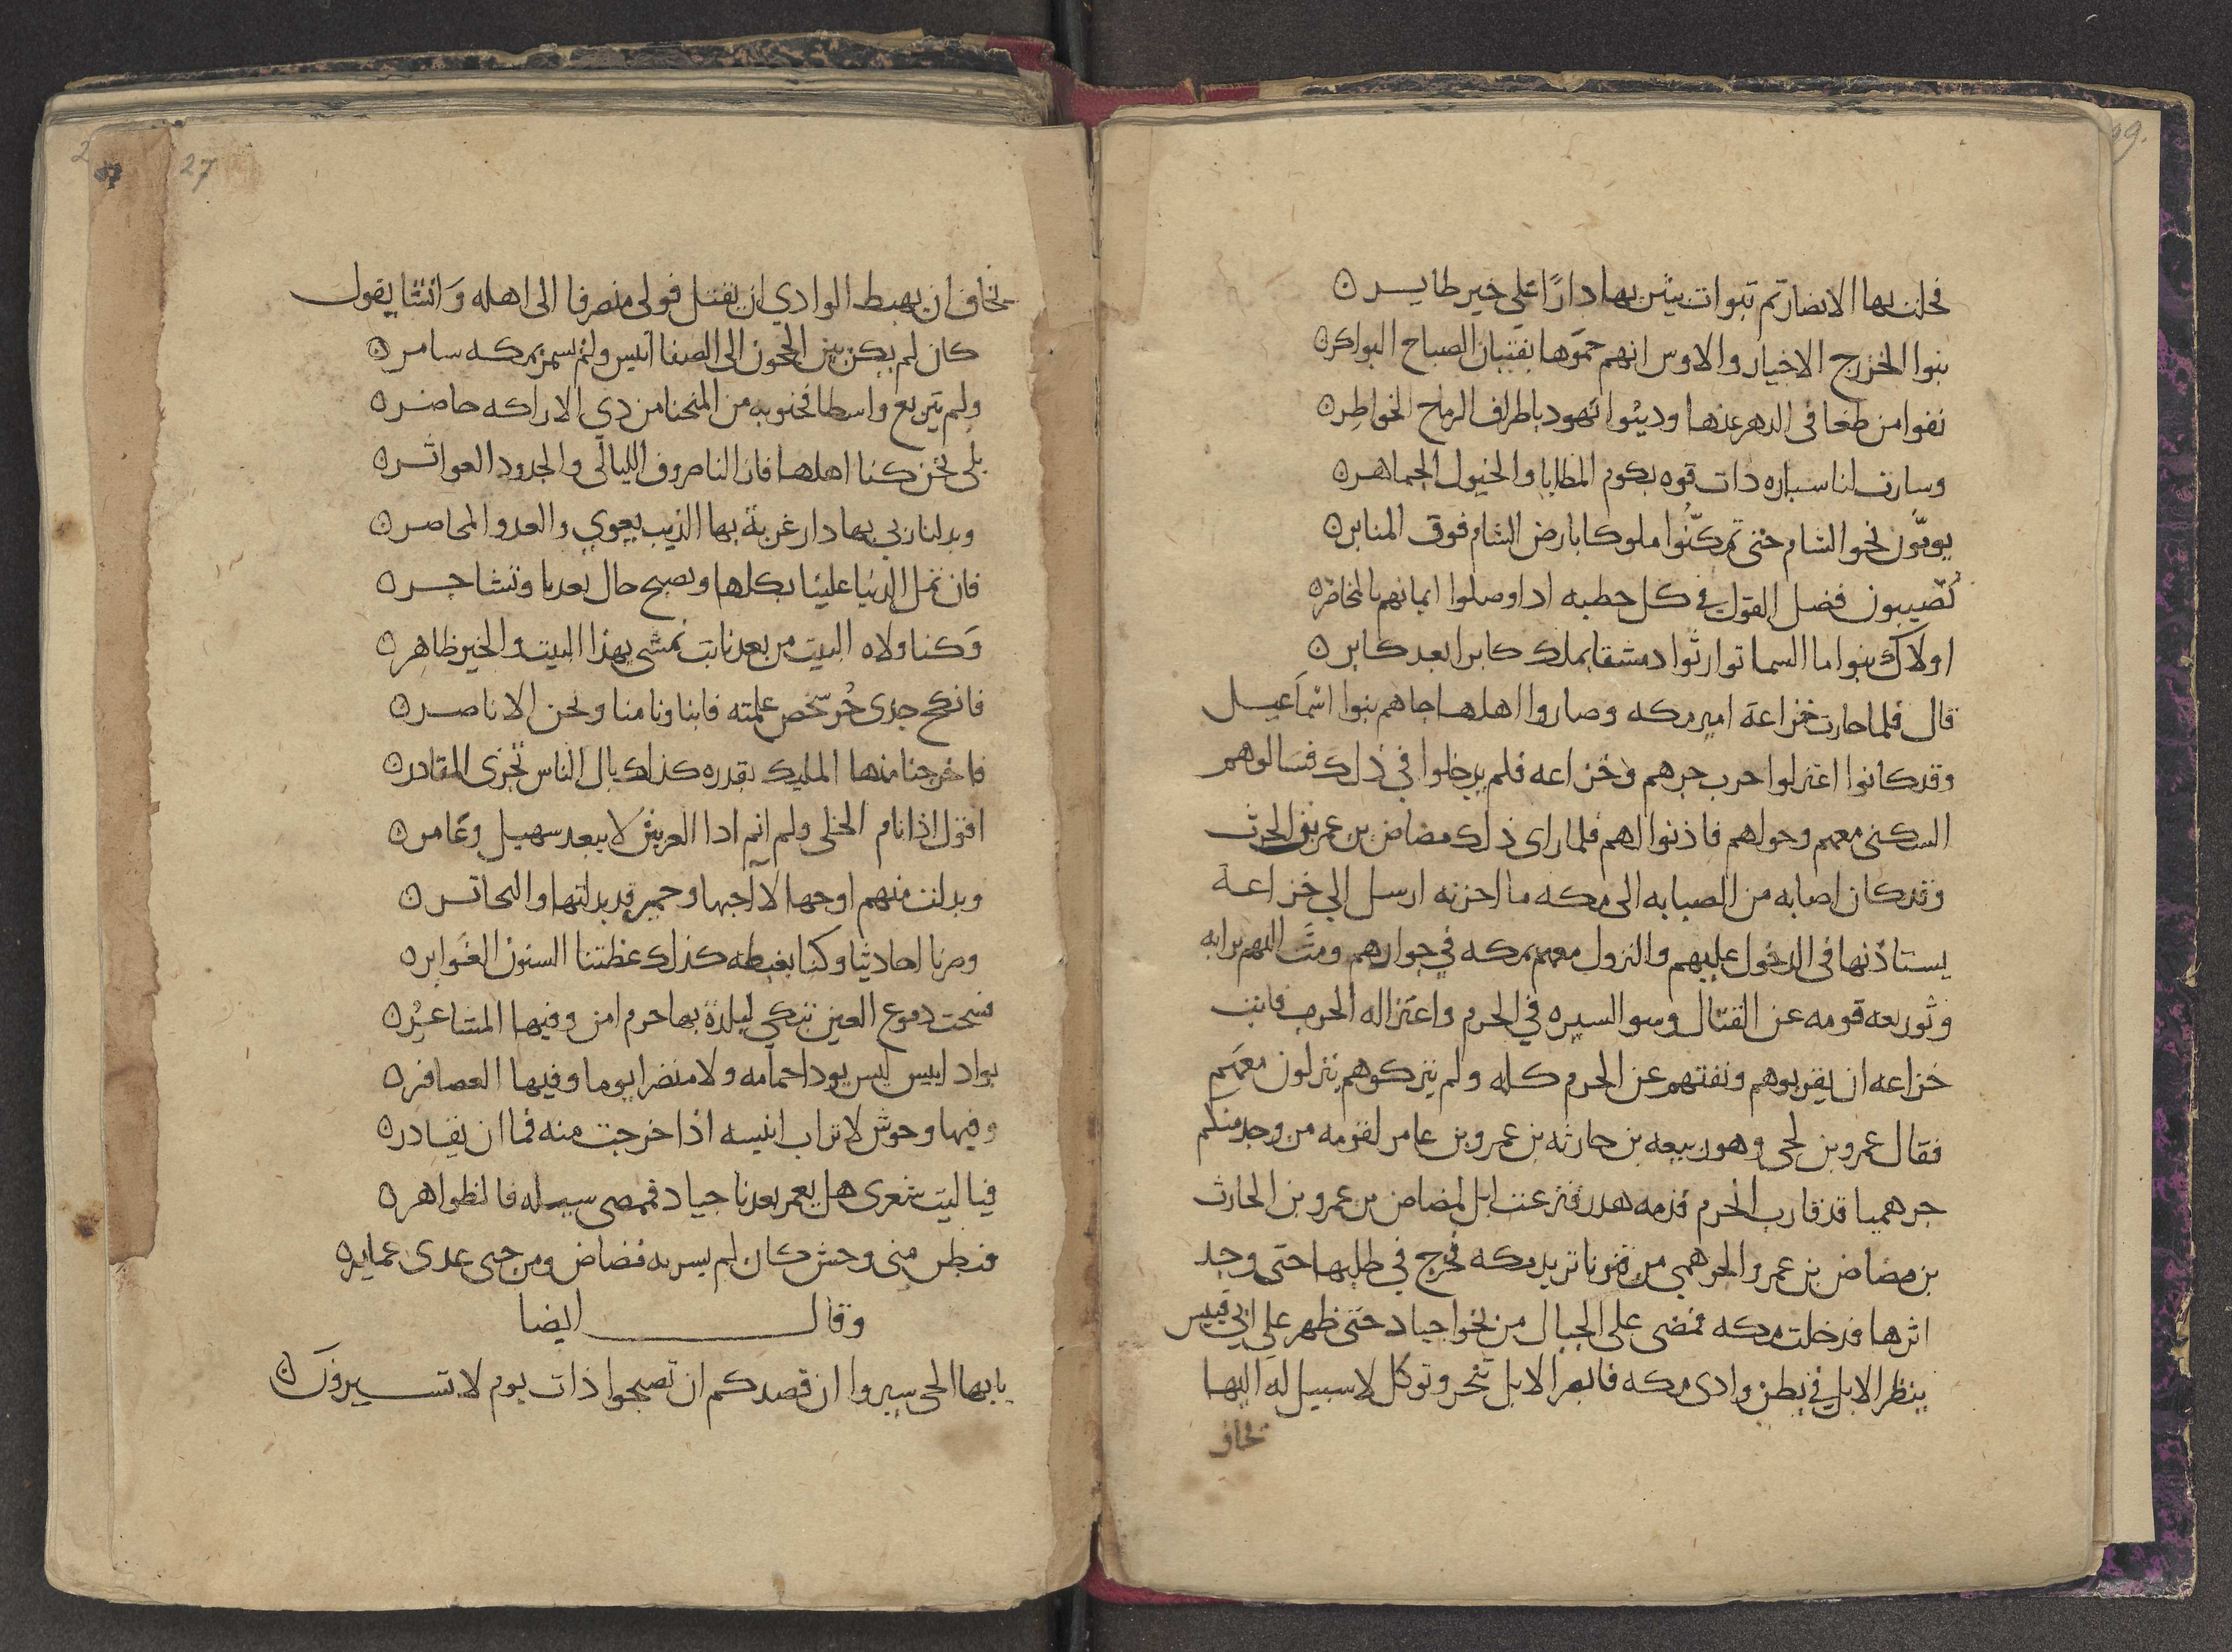 فحلت بها الانصار ثم تبوات بيثرب بها دارًا علي خير طايــر ٥
بنوا الخزرج الاخيار والاوس انهم حمَوها بفتيان الصباح البواكر ٥
نفوا من طغا في الدهر عنها وديثوا يهود باطراف الرماح الخواطر ٥
وسارت لنا سياره ذات قوه بكوم المطايا والخيول الجماهر ٥
يومّون نحو الشام حتى تمكنُوا ملوكا بارض الشام فوق المنابر ٥
يُصيبون فضل القول في كل خطبه اذا وصلوا ايمانهم بالمخاصر ٥
اولاك بنوا ما السما توارثوا دمشقا بملك كابرا بعد كابر ٥
قال فلما حازت خزاعة امر مكه وصاروا اهلها جاهم بنوا اسمَاعيــل
وقد كانوا اعتزلوا حرب جرهم وخزاعه فلم يدخلوا في ذلك فسالوهم
السكنى معهم وحولهم فاذنوا لهم فلما راى ذلك مضاض بن عمرو بن الحرث
وقد كان اصابه من الصبابه الى مكه ما احزنه ارسل الي خزاعــة
يستاذنها في الدخول عليهم والنزول معهم بمكه في جوارهم ومتَّ اليهم برايه
وتوريعه قومه عن القتال وسو السيره في الحرم واعتزاله الحرب فابت
خزاعه ان يقربوهم ونفتهم عن الحرم كله ولم يتركوهم ينزلون معهَم
فقال عمرو بن لحى وهو ربيعه بن حارثه بن عمرو بن عامر لقومه من وجد منكم
جرهميا قد قارب الحرم فدمه هدر فنزعت ابل لمضاض بن عمرو بن الحارث
بن مضاض بن عمرو الجرهمي من قنونا تريد مكه فخرج في طلبها حتى وجد
اثرها قد دخلت مكه فمضى على الجبال من نحو اجياد حتى ظهر علي ابي قبيس
ينظر الابل في بطن وادى مكه فابصر الابل تنحر وتوكل لا سبيل له اليها
فخاف
27
فخاف ان يهبط الوادي ان يقتل فولى منصرفا الى اهله وَانشا يقول
كان لم يكن بين الحجون الى الصفا انيس ولم يسمر بمكه سامر ٥
ولم يتربع واسطا فجنوبه من المنحنا من ذي الاراكه حاضر ٥
بلى نحن كنا اهلها فازالنا صروف الليالى والجدود العواثــر ٥
وبدلنا ربى بها دار غربة بها الذيب يعوي والعدو المحاصر ٥
فان تمل الدنيا علينا بكلها وتصبح حال بعدنا وتشاجــر ٥
وَكنا ولاه البيت من بعد نابت نمشى بهذا البيت والخير ظاهِر ٥
فانكح جدى خُر شخص علمته فابناونا منا ونحن الاناصــر ٥
فاخرجنا منها المليك بقدره كذلك بال الناس تجرى المقادر ٥
اقول اذا نام الخلى ولم انم اذا العرش لا يبعد سهيل وعَامر ٥
وبدلت منهم اوجها لا آحبها وحمير قد بدلتها واليحاتــر ٥
وصرنا احاديثا وكنا بغبطه كذلك عظتنا السنون الغَوابر ٥
فسحت دموع العين تبكي لبلدة بها حرم امن وفيها المشاعُر ٥
بواد انيس ليس يوذا حمامه ولا منضرا يوما وفيها العصافر ٥
وفيها وحوش لا تراب انيسه اذا خرجت منه فما ان يغادر ٥
فيا ليت شعرى هل يعمر بعدنا جياد فمصى سيله فالظواهر ٥
فبطن منى وحش كان لم يسر به مضاض ومن حى عدى عماير ٥
وقال ايضا
يايها الحى سيروا ان قصدكم ان تصبحوا ذات يوم لا تســيرونَ ٥